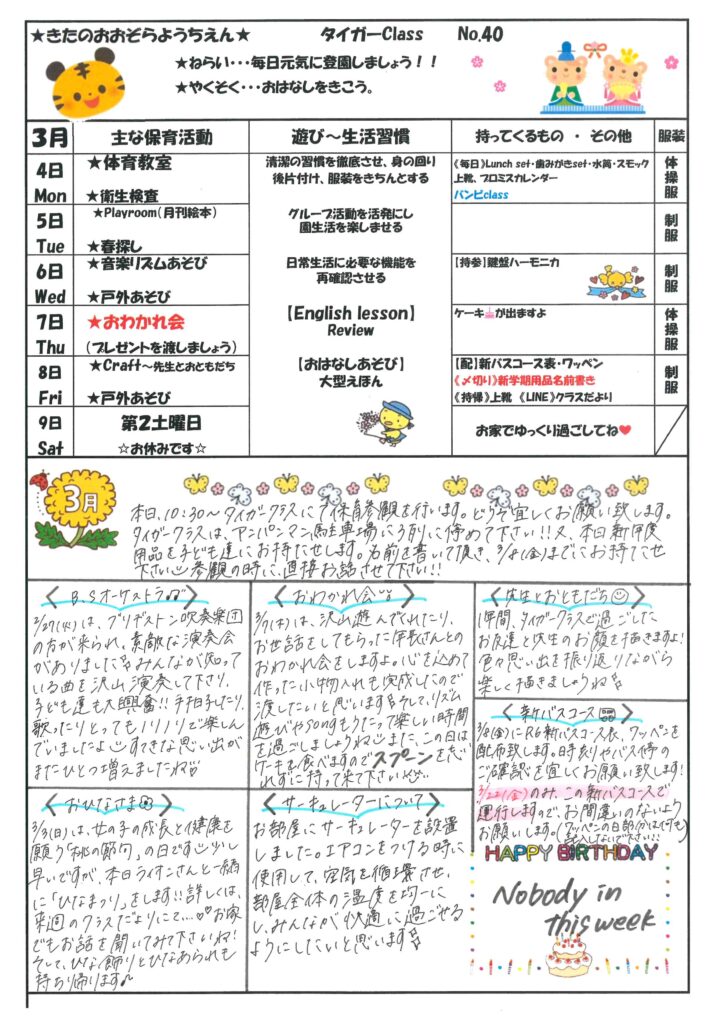 ★きたのおおぞらようちえん★ タイガーClass No.40
★ねらい・・・毎日元気に登園しましょう！！
★やくそく・・・おはなしをきこう。
3月 主な保育活動 遊び～生活習慣 持ってくるもの ・ その他 服装
4日 Mon
★体育教室
★衛生検査
清潔の習慣を徹底させ、身の回り
後片付け、服装をきちんとする
《毎日》Lunch set・歯みがきset・水筒・スモック
上靴、プロミスカレンダー
バンビclass
体操服
5日 Tue
★Playroom（月刊絵本）
★春探し
グループ活動を活発にし
園生活を楽しませる
制服
6日 Wed
★音楽リズムあそび
★戸外あそび
日常生活に必要な機能を
再確認させる
【持参】鍵盤ハーモニカ
制服
7日 Thu
★おわかれ会
（プレゼントを渡しましょう）
【English lesson】
Review
ケーキが出ますよ
体操服
8日 Fri
★Craft～先生とおともだち
★戸外あそび
【おはなしあそび】
大型えほん
【配】新バスコース表・ワッペン
《〆切り》新学期用品名前書き
《持帰》上靴 《LINE》クラスだより
制服
9日 Sat
第2土曜日
☆お休みです☆
お家でゆっくり過ごしてね♥
3月
本日、10:30～タイガークラスにて保育参観を行います。どうぞ宜しくお願い致します。
タイガークラスは、アンパンマン駐車場に3列に停めて下さい!!又、本日新年度
用品を子ども達にお持たせします。名前を書いて頂き、3/8(金)までにお持たせ
下さい 参観の時に、直接お話させて下さい!!
〈B.Sオーケストラ〉
2/27(火)は、ブリヂストン吹奏楽団
の方が来られ、素敵な演奏会
がありました みんなが知って
いる曲を沢山演奏して下さり、
子ども達も大興奮!!手拍子したり、
歌ったりとってもノリノリで楽しん
でいましたよ すてきな思い出が
またひとつ増えましたね
〈おわかれ会〉
3/7(木)は、沢山遊んでくれたり、
お世話をしてもらった年長さんとの
おわかれ会をしますよ。心を込めて
作った小物入れも完成したので
渡したいと思います そして、リズム
遊びやsongもうたって楽しい時間
を過ごしましょうね また、この日は
ケーキも食べますのでスプーンを忘
れずに持って来て下さい
〈先生とおともだち〉
1年間、タイガークラスで過ごした
お友達と先生のお顔を描きますよ!
色々思い出を振り返りながら
楽しく描きましょうね
〈新バスコース〉
3/8(金)にR6新バスコース表、ワッペンを
配布致します。時刻やバス停の
ご確認を宜しくお願い致します!
3/22(金)のみ、この新バスコースで
運行しますので、お間違いのないよう
お願いします。(ワッペンの白部分は何も
記入しないで下さい!!)
〈おひなさま〉
3/3(日)は、女の子の成長と健康を
願う「桃の節句」の日です 少し
早いですが、本日ライオンさんと一緒
に「ひなまつり」をします!!詳しくは、
来週のクラスだよりにて…♡お家
でもお話を聞いてみて下さいね!
そして、ひな飾りとひなあられも
持ち帰ります♪
〈サーキュレーターについて〉
お部屋にサーキュレーターを設置
しました。エアコンをつける時に
使用して、空気を循環させ、
部屋全体の温度を均一に
し、みんなが快適に過ごせる
ようにしたいと思います
HAPPY BIRTHDAY
Nobody in
this week